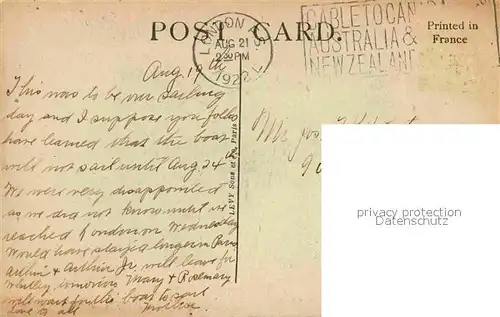 POST CARD.
LONDON F.S.
AUG 21
1922
CABLE TO CAN
AUSTRALIA &
NEW ZEALAND
Printed in
France
Aug. 19th
This was to be our sailing
day and I suppose you folks
have learned that the boat
will not sail until Aug. 24
We were very disappointed
as we did not know until we
reached London on Wednesday
Would have stayed longer in Paris
Arthur & Arthur Jr. will leave for
Whitley tomorrow Mary & Rosemary
will wait for the boat to sail
Love to all
LEVY Sons et Cie, Paris
Mr Jos.
privacy protection
Datenschutz